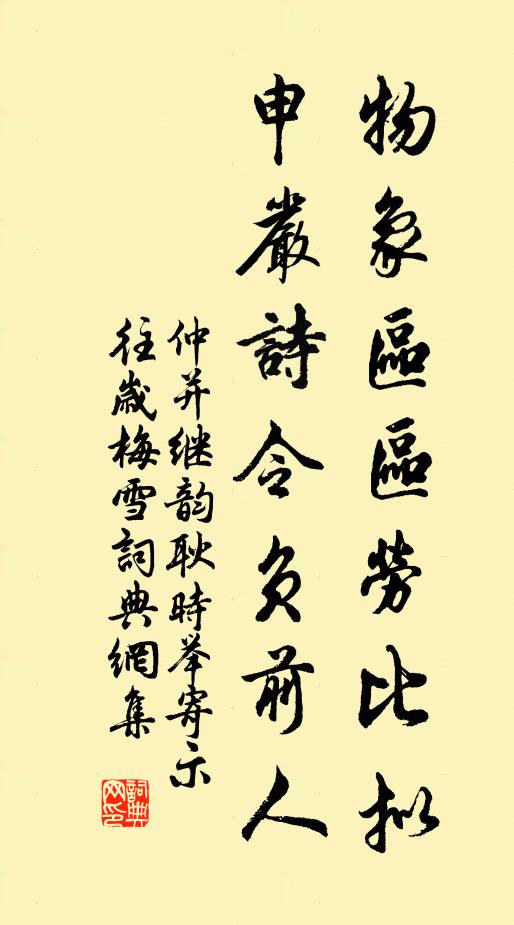 物象區區勞比拟
申嚴詩令负前人
仲并继韵耿時举寄示
往歲梅雪詞典網集
詞典网印